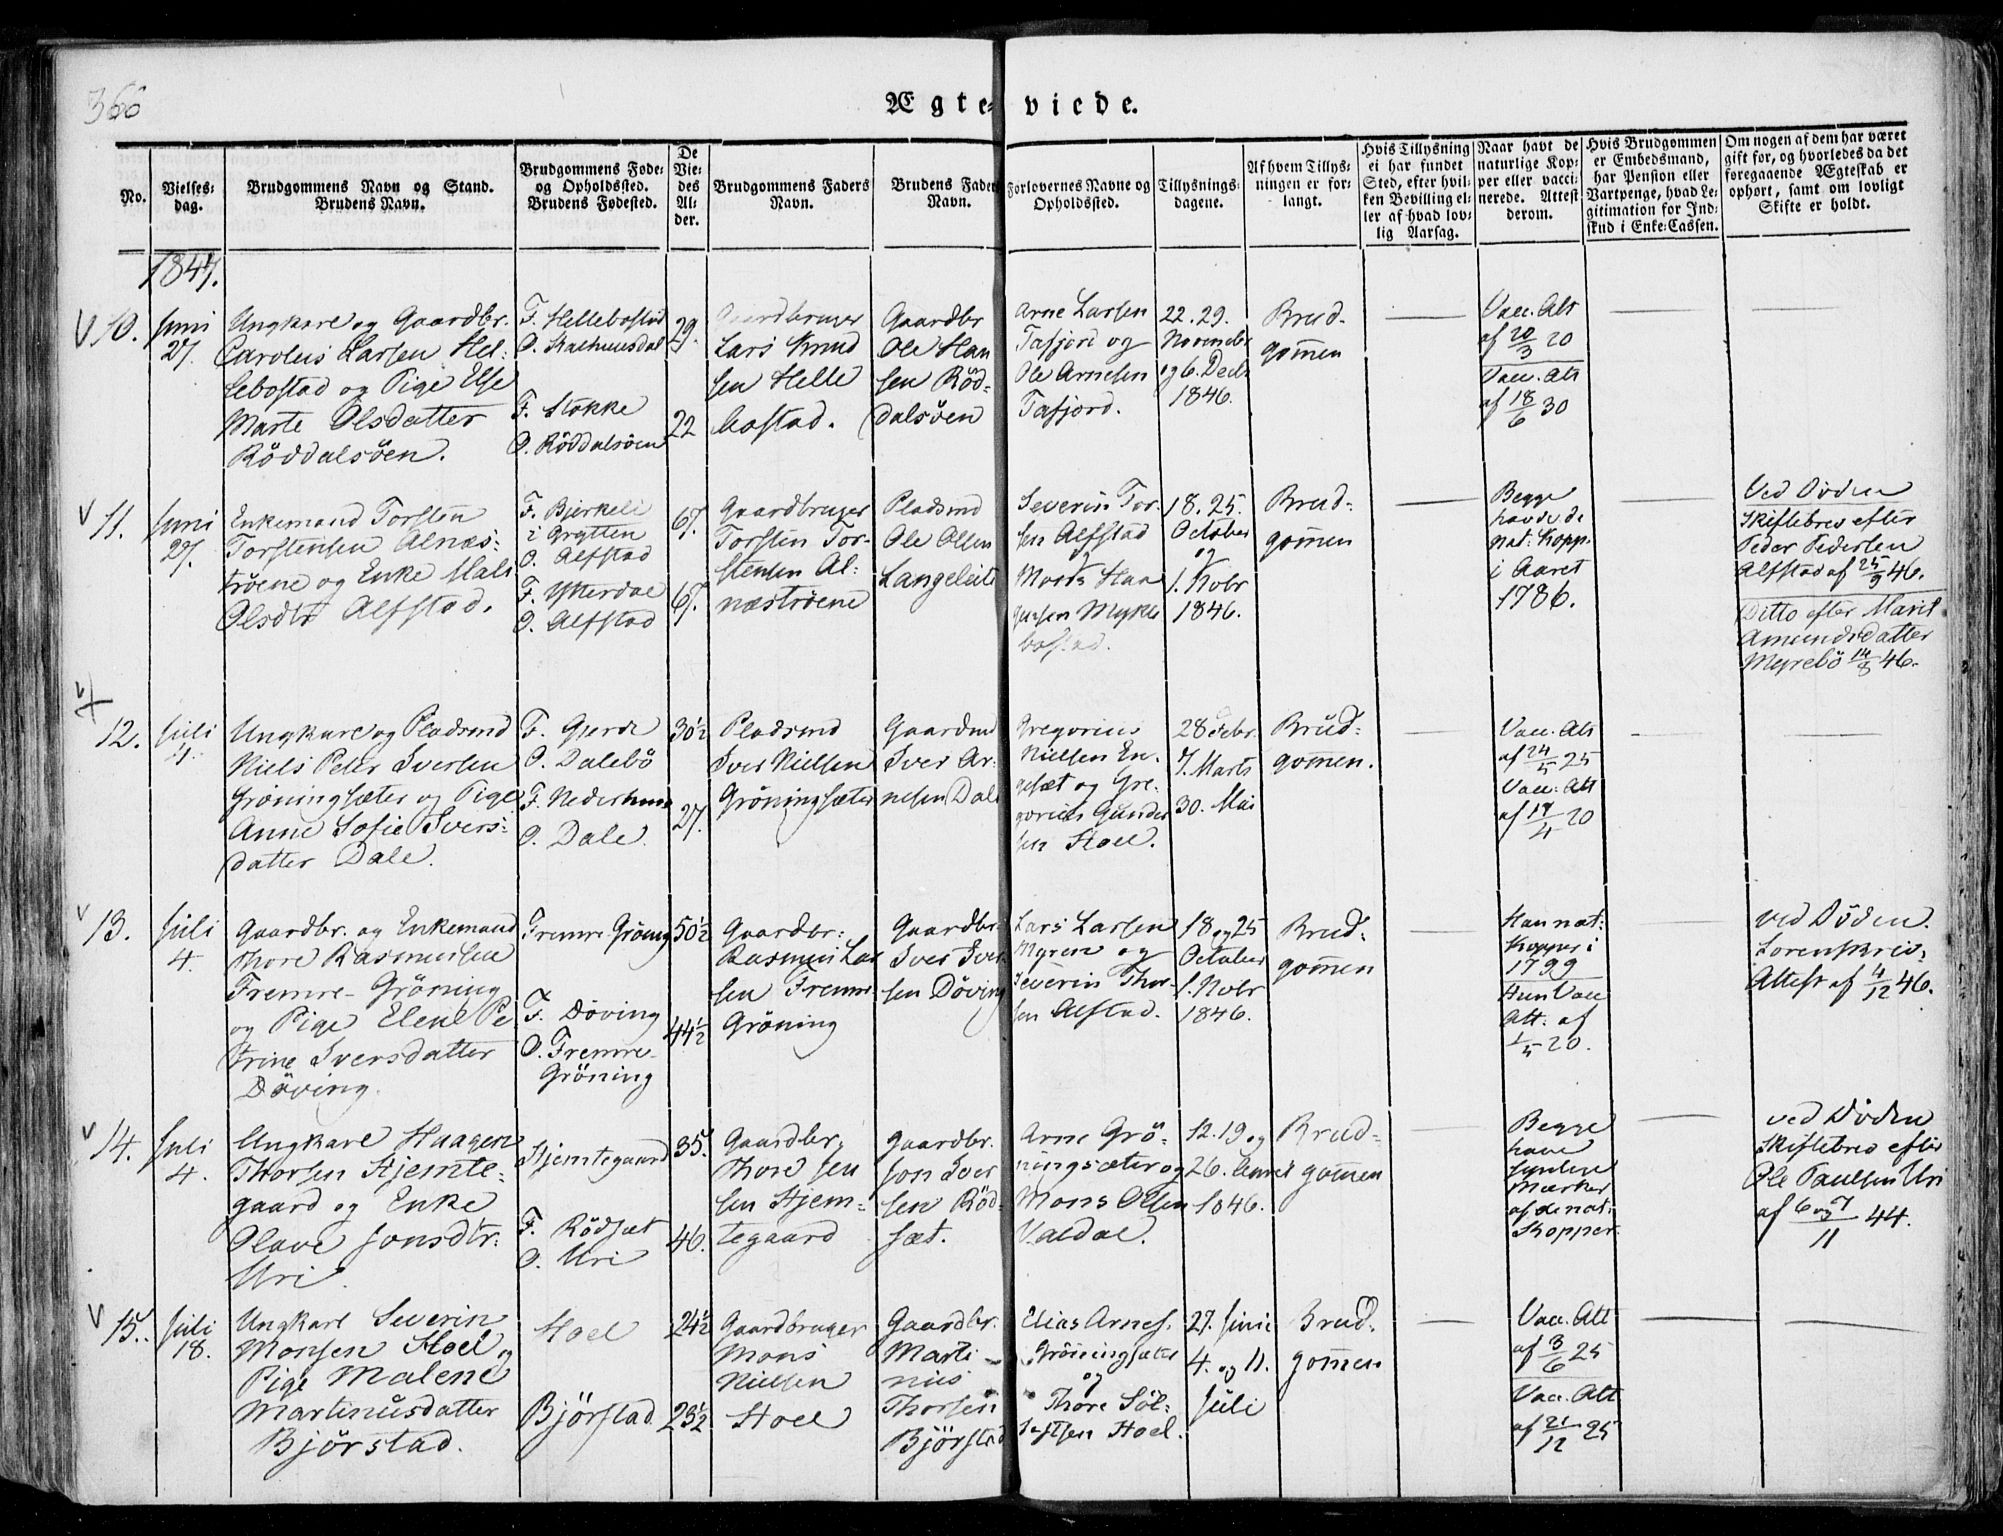 366
Ægteviede.
No.
Vielses-
dag.
Brudgommens Navn og Stand.
Brudens Navn.
Brudgommens Føde-
og Opholdssted.
Brudens Fødested.
De
Vie-
des
Al-
der.
Brudgommens Faders
Navn.
Brudens Faders
Navn.
Forlovernes Navne og
Opholdssted.
Tillysnings-
dagene.
Af hvem Tillys-
ningen er for-
langt.
Hvis Tillysning
ei har fundet
Sted, efter hvil-
ken Bevilling el-
ler af hvad lov-
lig Aarsag.
Naar havt de
naturlige Kop-
per eller vacci-
nerede. Attest
derom.
Hvis Brudgommen
er Embedsmand,
har Pension eller
Vartpenge, hvad Le-
gitimation for Ind-
skud i Enke-Cassen.
Om nogen af dem har været
gift før, og hvorledes da det
foregaaende Ægteskab er
ophørt, samt om lovligt
Skifte er holdt.
1847.
10.
Juni
27.
Ungkare og Gaardbr.
Carolus Larsen Hel-
lebostad og Pige Else
Marte Olsdatter
Röddalsöen.
F. Hellebostad
F. Stokke
O. Röddalsöen
29.
22
Gaardbruger
Lars Knud
sen Helle
bostad.
Gaardbr
Ole Han
sen Röd-
dalsöen
Arne Larsen
Tafjord og
Ole Arnesen
Tafjord.
22. 29.
November
og 6. Decbr
1846.
Brud-
gommen
Vacc. Att
af 20/3 20
Vacc. Att
af 18/6 30
11.
Juni
27.
Enkemand Torsten
Torstensen Alnæs-
tröene og Enke Mali
Olsdtr Alfstad.
F. Bjerkeli
i Grytten
O. Alfstad
F. Ytterdal
O. Alfstad
67.
67.
Gaardbruger
Torsten Tor-
stensen Al-
næströene
Pladsmd
Ole Olsen
Langeleite
Severin Tor
sen Alfstad
og
Mons Haa
gensen Mykle
bostad.
18. 25.
October
og
1. Novbr
1846.
Brud-
gommen
Begge
havde de
nat: Kopp.
i Aaret
1786.
Ved Döden
Skiftebrev efter
Peder Pedersen
Alfstad af 25/9 46.
Ditto efter Marit
Amundsdatter
Myrebö 14/8 46.
12.
Juli
4.
Ungkare og Pladsmd
Niels Peter Iversen
Gröningsæter og Pige
Anne Sofie Ivers-
datter Dale.
F. Gjerde
O. Dalebö
F. Nederhuus
O. Dale.
30½
27.
Pladsmd
Iver Nielsen
Gröningsæter
Gaardmd
Iver Ar-
nesen Dale
Gregorius
Nielsen En-
gesæt og Gre-
gorius Gunder
sen Hoel.
28 Febr.
7. Marts
30. Mai
Brud-
gommen.
Vacc. Att
af 24/5 25
Vacc. Att
af 17/4 20
13.
Juli
4.
Gaardbr. og Enkemand
Thore Rasmussen
Fremre-Gröning
og Pige Elene Pe
trine Iversdatter
Döving.
Fremre Gröning
F. Döving
O. Fremre-
Gröning
50½
44½
Gaardbr.
Rasmus Lar
sen Fremre
Gröning
Gaardbr.
Iver Iver
sen Döving
Lars Larsen
Myren og
Severin Thor-
sen Alfstad.
18 og 25
October
1. Novbr
1846.
Brud-
gommen
Han nat:
Kopper i
1799
Hun Vacc
Att: af
1/5 20.
ved Döden.
Sorenskriv.
Attest af 4/12 46.
14.
Juli
4.
Ungkare Haagen
Thorsen Hjemte-
gaard og Enke
Olave Jonsdtr.
Uri.
Hjemtegaard
F. Rödsæt
O. Uri
35.
46.
Gaardbr.
Thore Jen
sen Hjem-
tegaard
Gaardbr.
Jon Iver
sen Röd-
sæt.
Arne Grö-
ningsæter og
Mons Olsen
Valdal.
12. 19 og
26.
1846.
Brud-
gommen
Begge
have
synlige
Mærker
af de nat:
Kopper.
ved Döden
Skiftebrev efter
Ole Paulsen Uri
af 6 og 7/11 44.
15.
Juli
18.
Ungkare Severin
Monsen Hoel og
Pige Malene
Martinusdatter
Björstad.
Hoel
Björstad
24½
23½
Gaardbruger
Mons
Nielsen
Hoel
Gaardbr.
Marti-
nus
Thorsen
Björstad
Elias Arnes.
Gröningsæter
og
Thore Söl-
festsen Hoel.
27. Juni
4. og 11.
Juli
Brud-
gommen
Vacc. Att
af 3/6 25
Vacc. Att
af 21/12 25